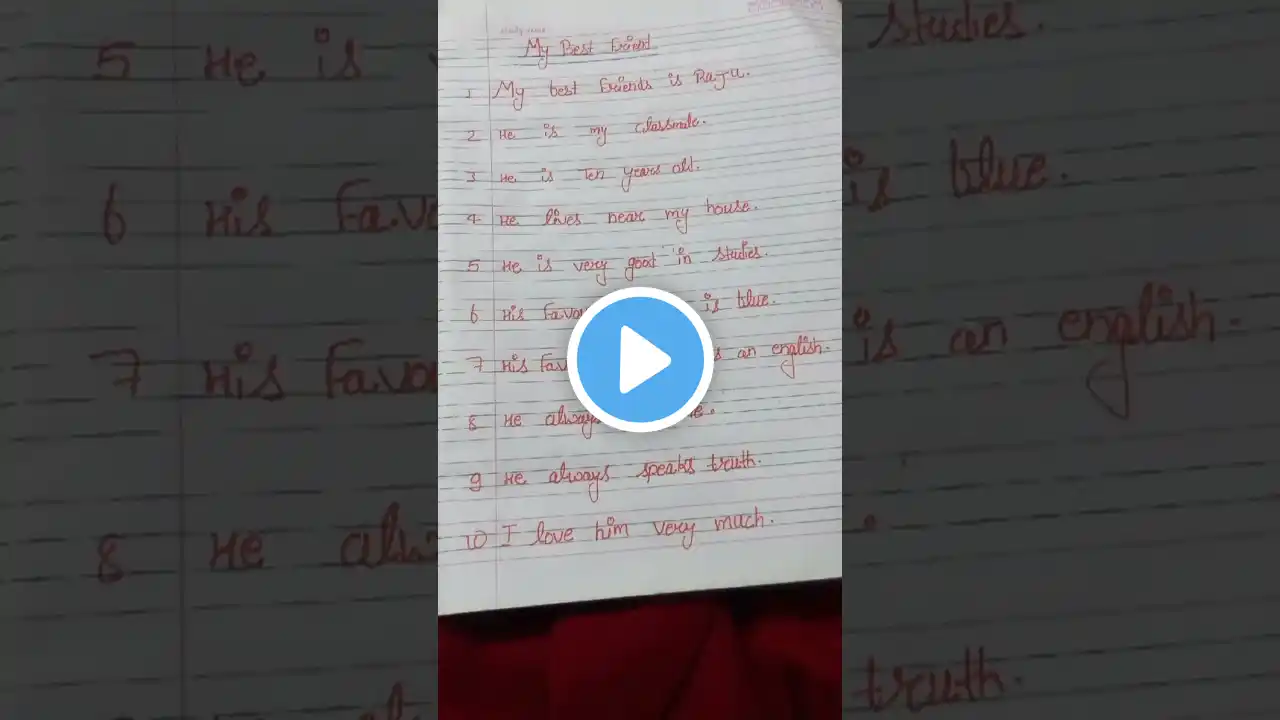 My Best Friend
1 My best Friends is Raju.
2 He is my classmate.
3 He is Ten years old.
4 He lives near my house.
5 He is very good in studies.
6 His Favou is blue.
7 His Fav an english.
8 He always
9 He always speaks truth.
10 I love him very much.